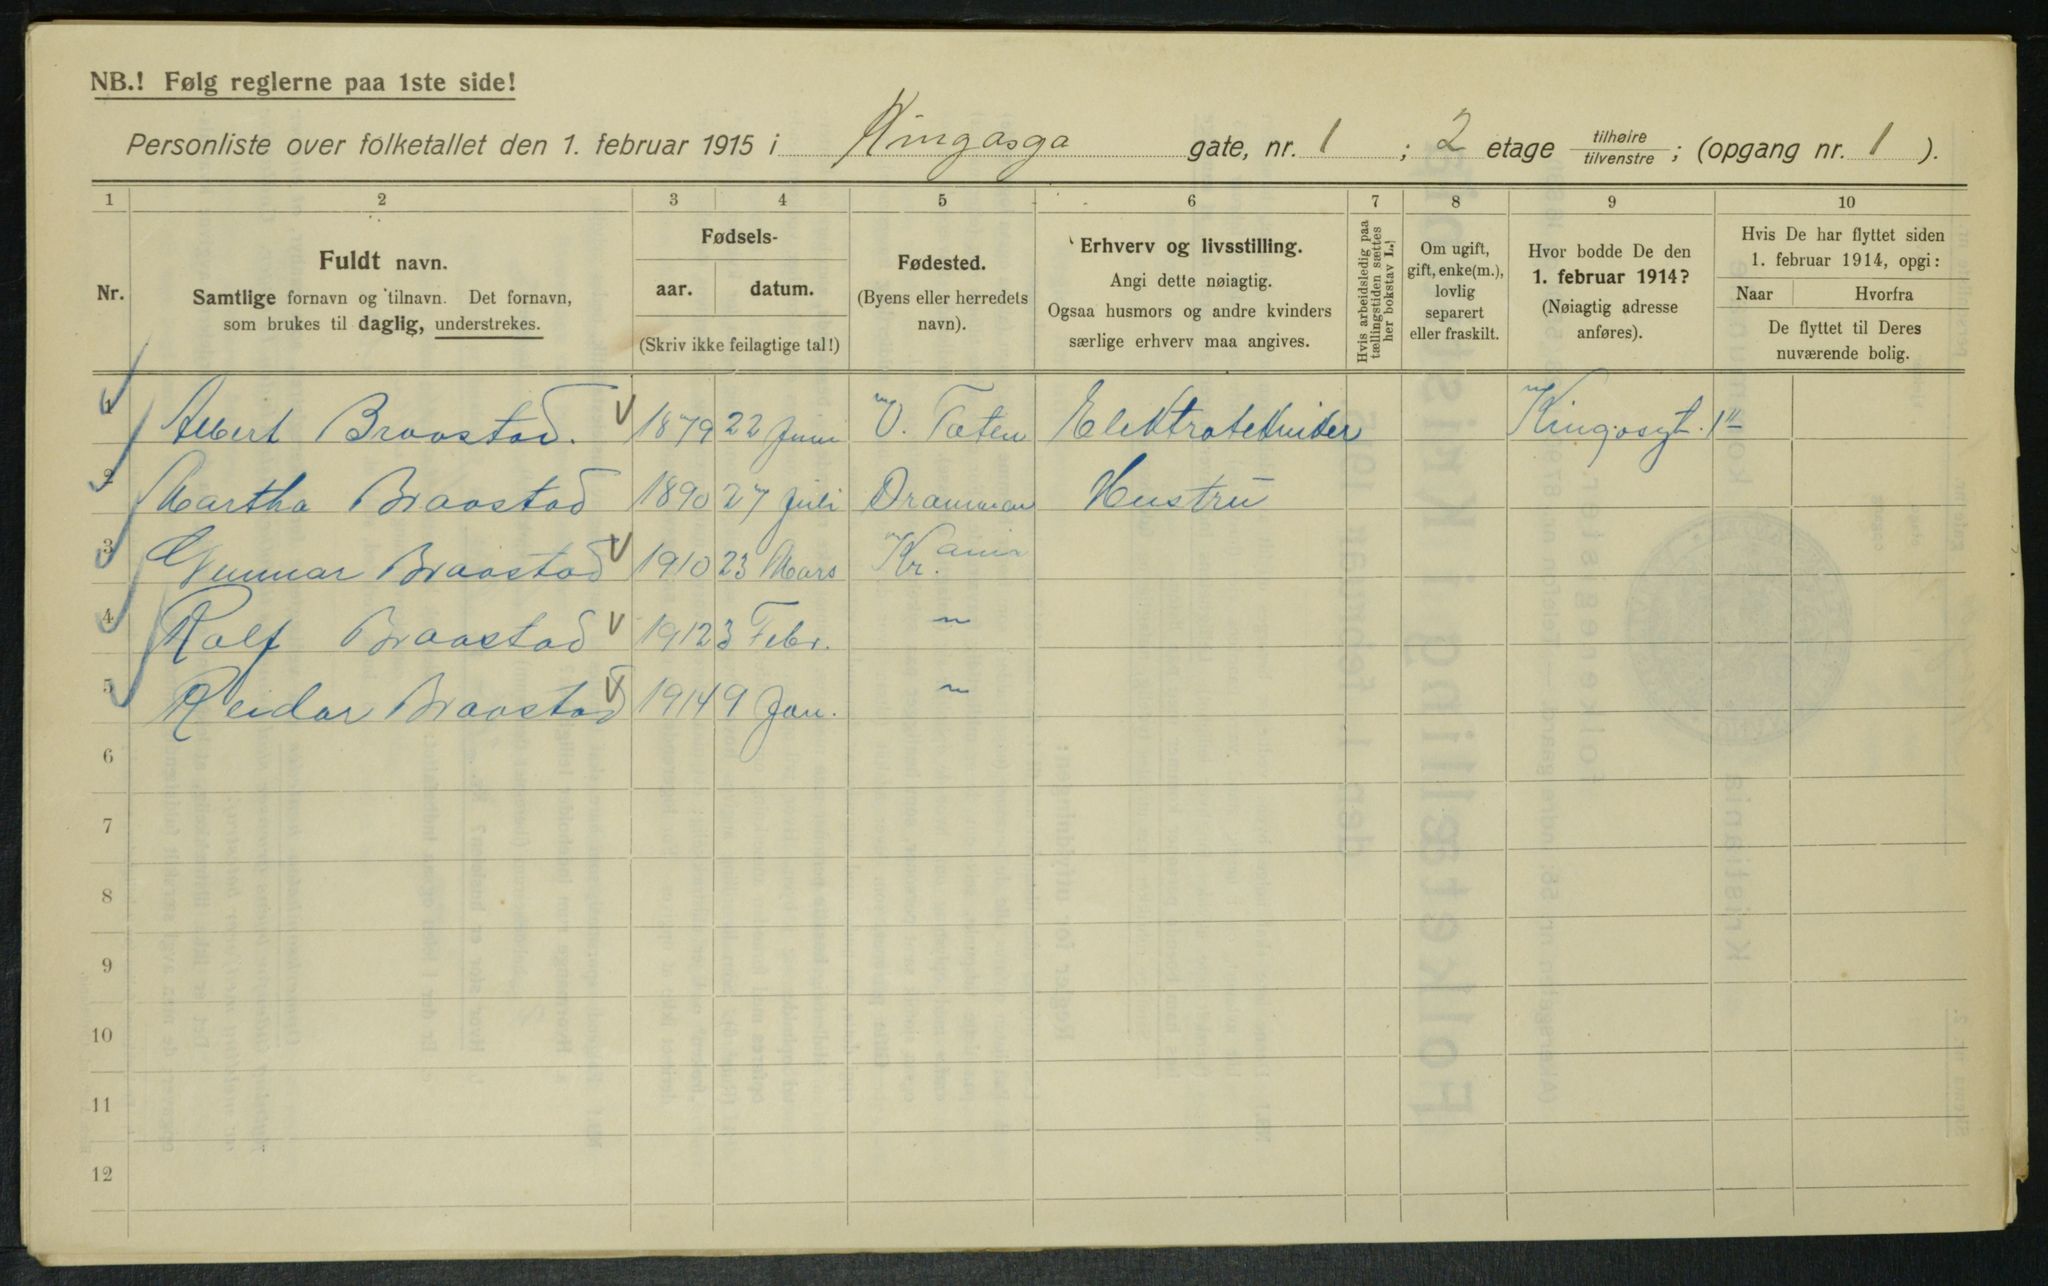 NB.! Følg reglerne paa 1ste side!
Personliste over folketallet den 1. februar 1915 i Kingosga gate, nr. 1 ; 2 etage tilhøire / tilvenstre ; (opgang nr. 1 ).
1 2 3 4 5 6 7 8 9 10
Nr.
Fuldt navn.
Samtlige fornavn og tilnavn. Det fornavn,
som brukes til daglig, understrekes.
Fødsels-
aar. datum.
(Skriv ikke feilagtige tal!)
Fødested.
(Byens eller herredets
navn).
Erhverv og livsstilling.
Angi dette nøiagtig.
Ogsaa husmors og andre kvinders
særlige erhverv maa angives.
Hvis arbeidsledig paa
tællingstiden sættes
her bokstav L.)
Om ugift,
gift, enke(m.),
lovlig
separert
eller fraskilt.
Hvor bodde De den
1. februar 1914?
(Nøiagtig adresse
anføres).
Hvis De har flyttet siden
1. februar 1914, opgi:
Naar Hvorfra
De flyttet til Deres
nuværende bolig.
1 Albert Braastad. 1879 22 Juni V. Toten Elektrotekniker Kingosgt. 1
2 Martha Braastad 1890 27 Juli Drammen Hustru
3 Gunnar Braastad 1910 23 Mars Kr.ania
4 Rolf Braastad 1912 3 Febr. "
5 Reidar Braastad 1914 9 Jan. "
6
7
8
9
10
11
12